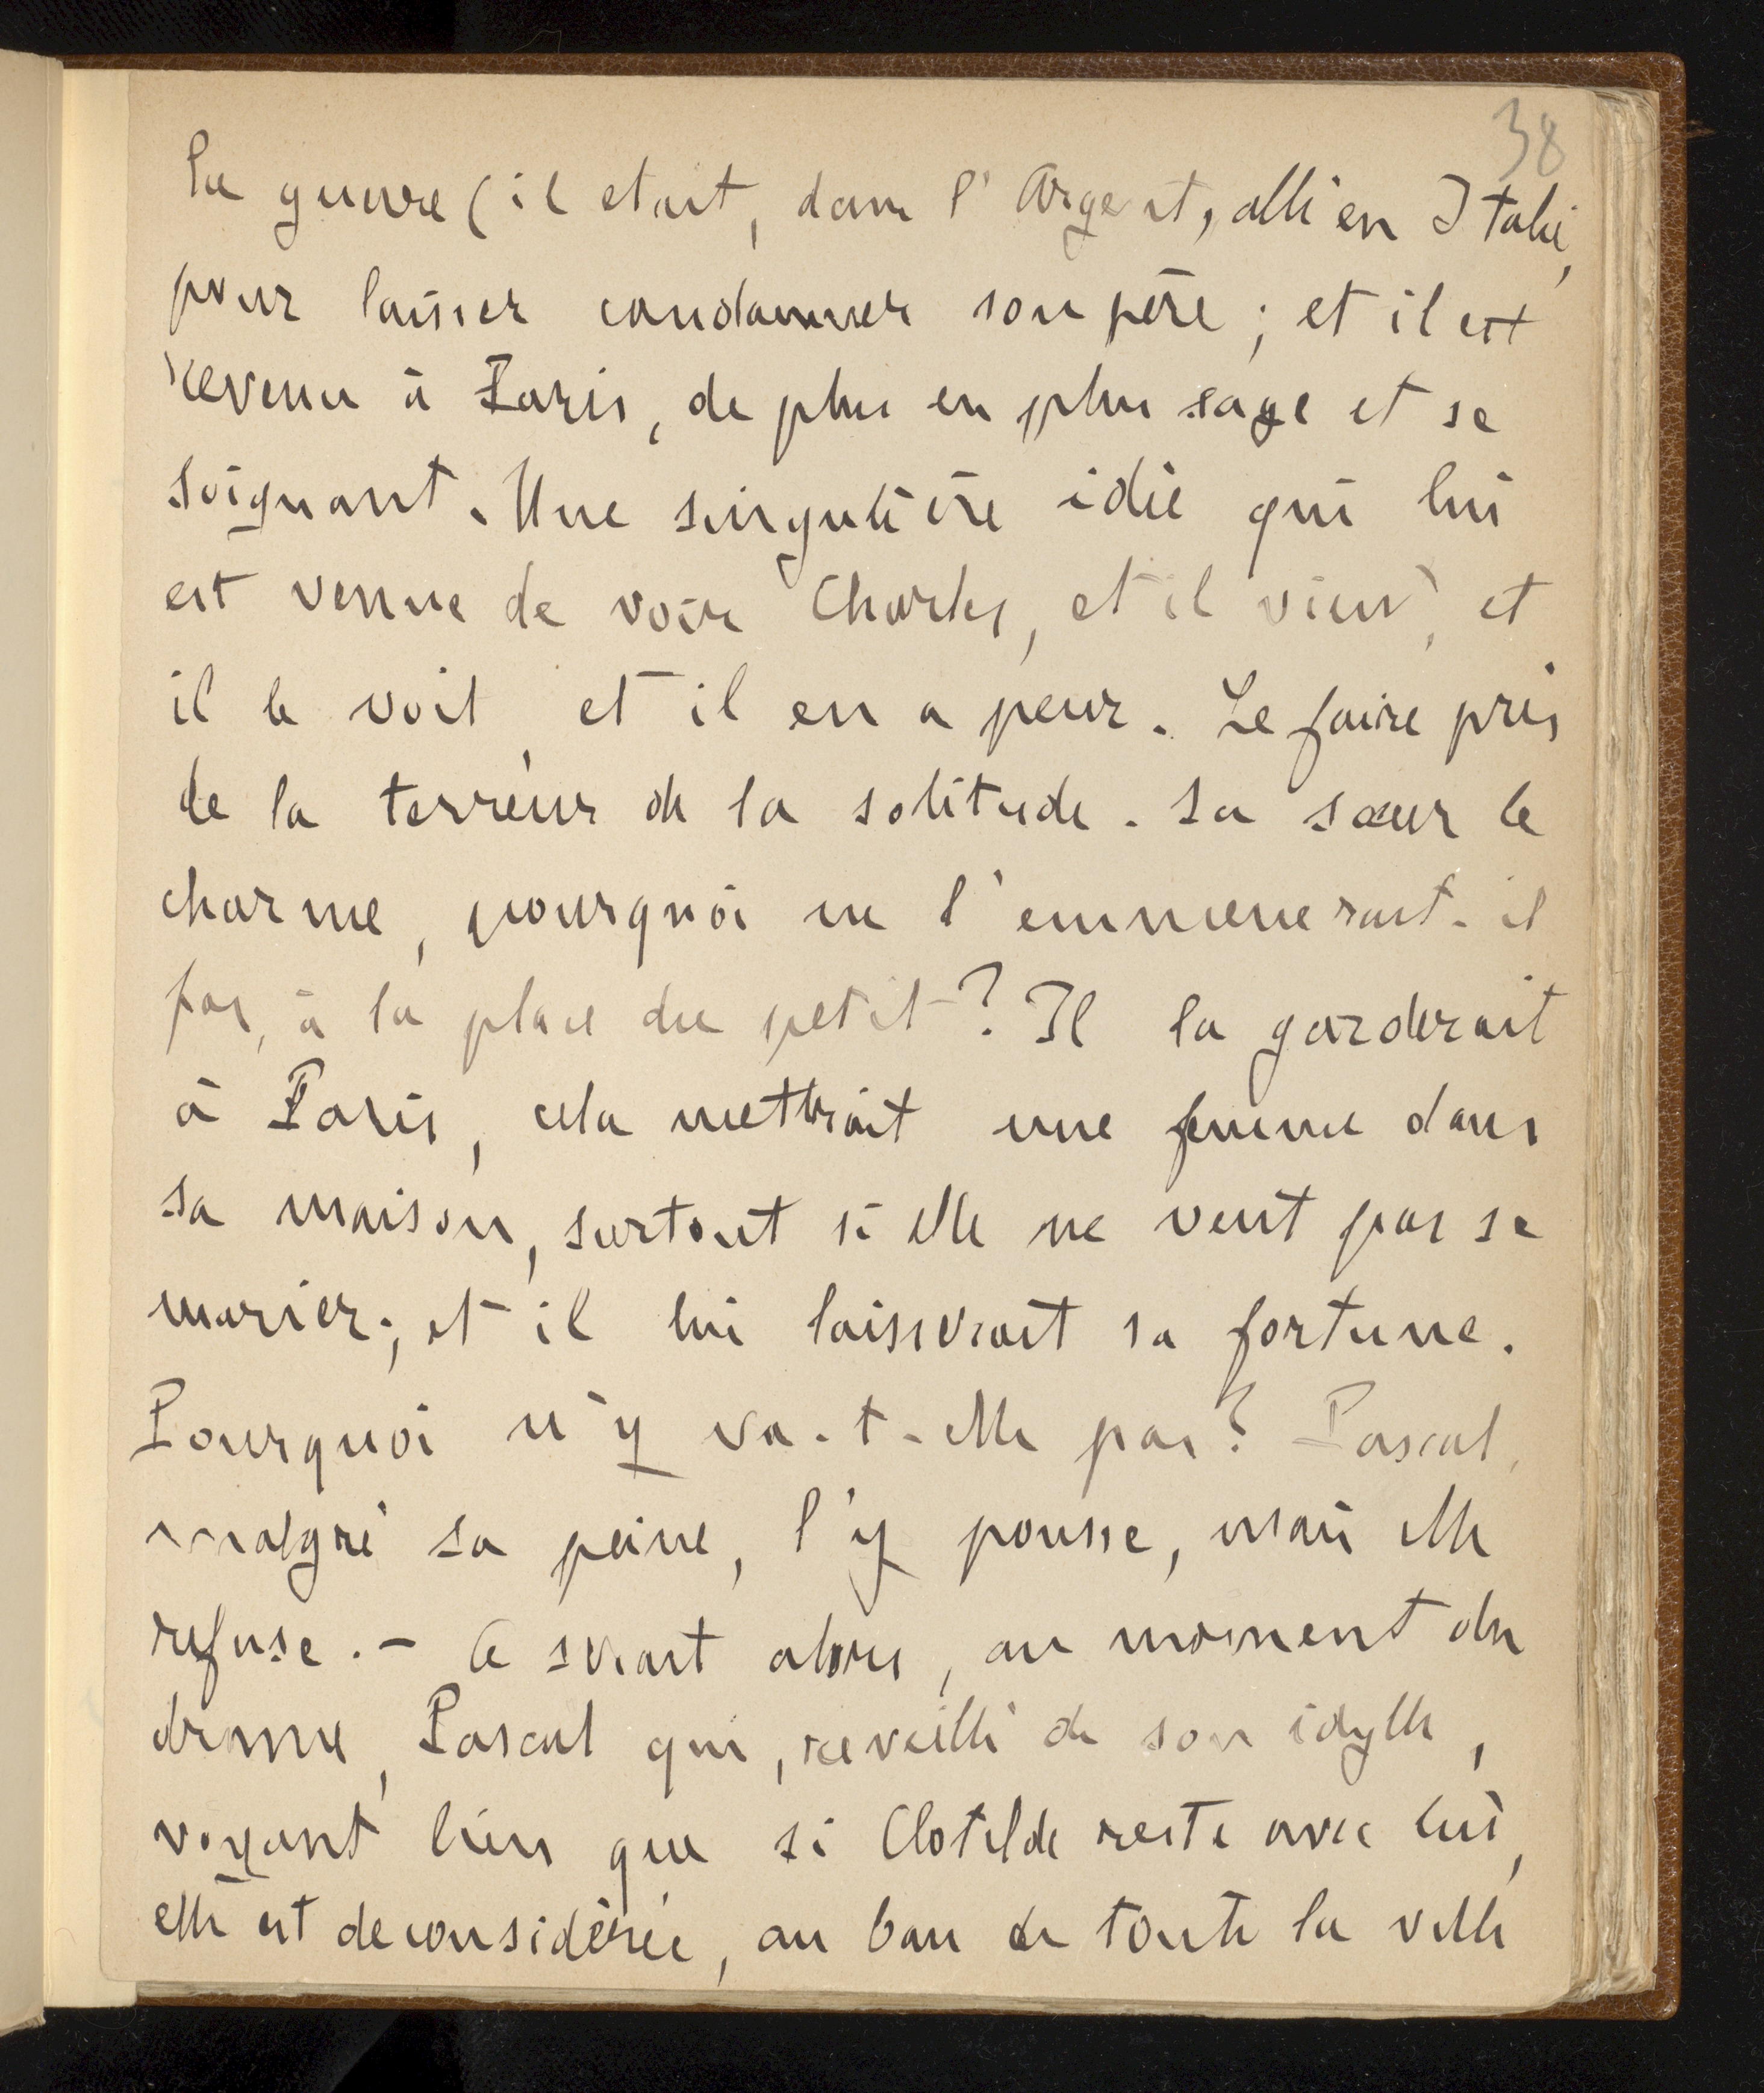 38
la guerre (il était, dans l'Argent, allé en Italie,
pour laisser condamner son père ; et il est
revenu à Paris, de plus en plus sage et se
soignant. Une singulière idée qui lui
est venue de voir Charles, et il vient, et
il le voit, et il en a peur. Le faire pris
de la terreur de la solitude. Sa sœur le
charme, pourquoi ne l'emmenerait-il
pas, à la place du petit ? Il la garderait
à Paris, cela mettrait une femme dans
sa maison, surtout si elle ne veut pas se
marier ; et il lui laisserait sa fortune.
Pourquoi n'y va-t-elle pas ? Pascal,
malgré sa peine, l'y pousse, mais elle
refuse. – Ce serait alors, au moment du
drame, Pascal qui, réveillé de son idylle,
voyant bien que si Clotilde reste avec lui,
elle est déconsidérée, au ban de toute la ville